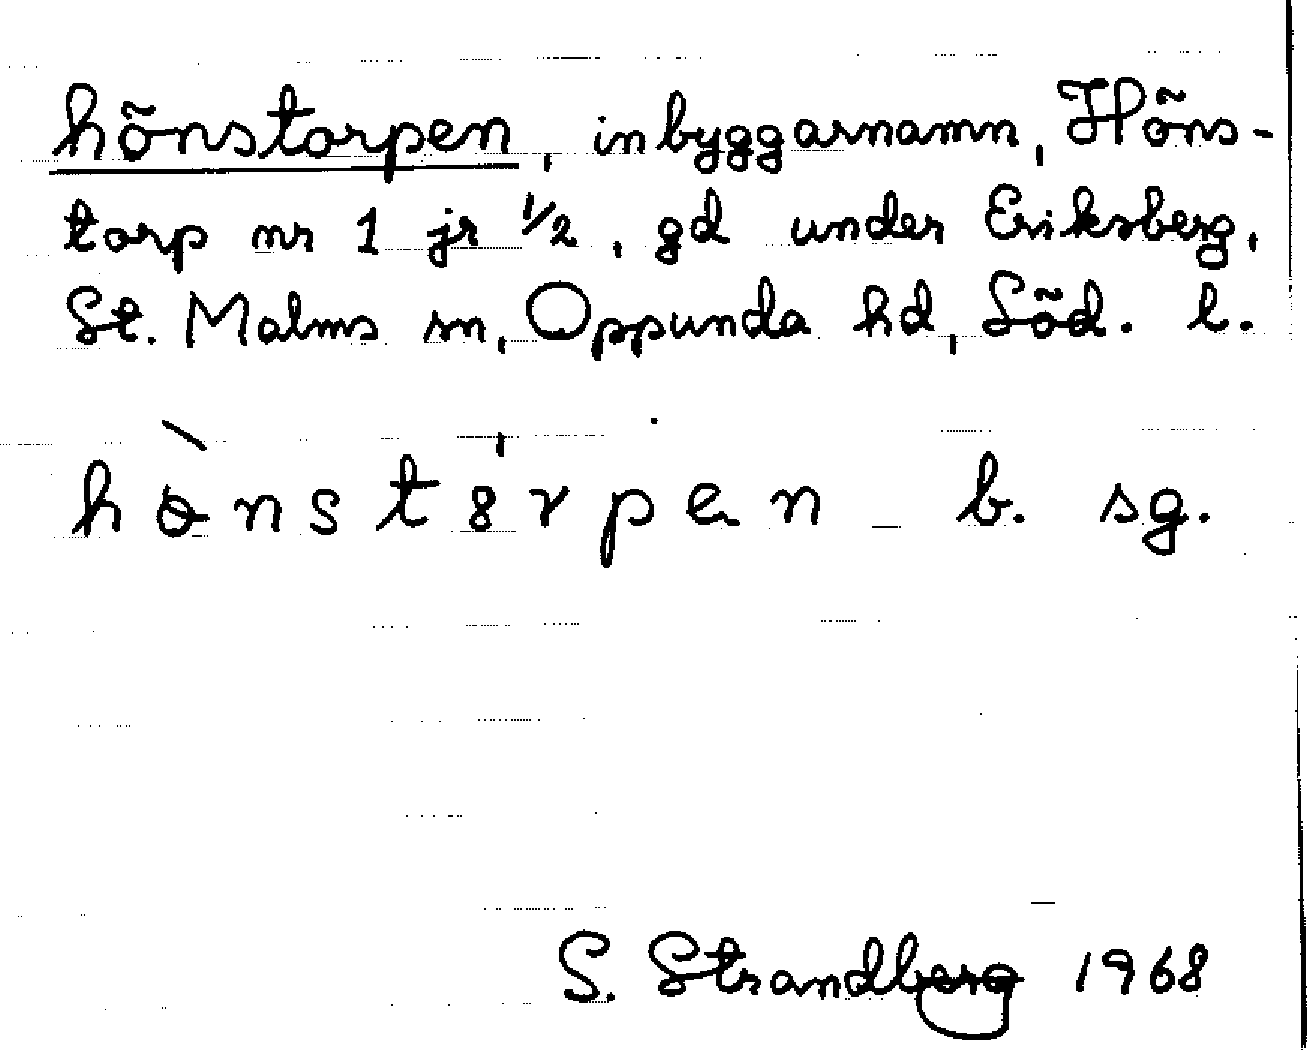 hönstorpen, inbyggarnamn, Höns-
torp nr 1 jr 1/2, gd under Eriksberg,
St. Malms sn, Oppunda hd, Söd. l.
b. sg.
S. Strandberg 1968